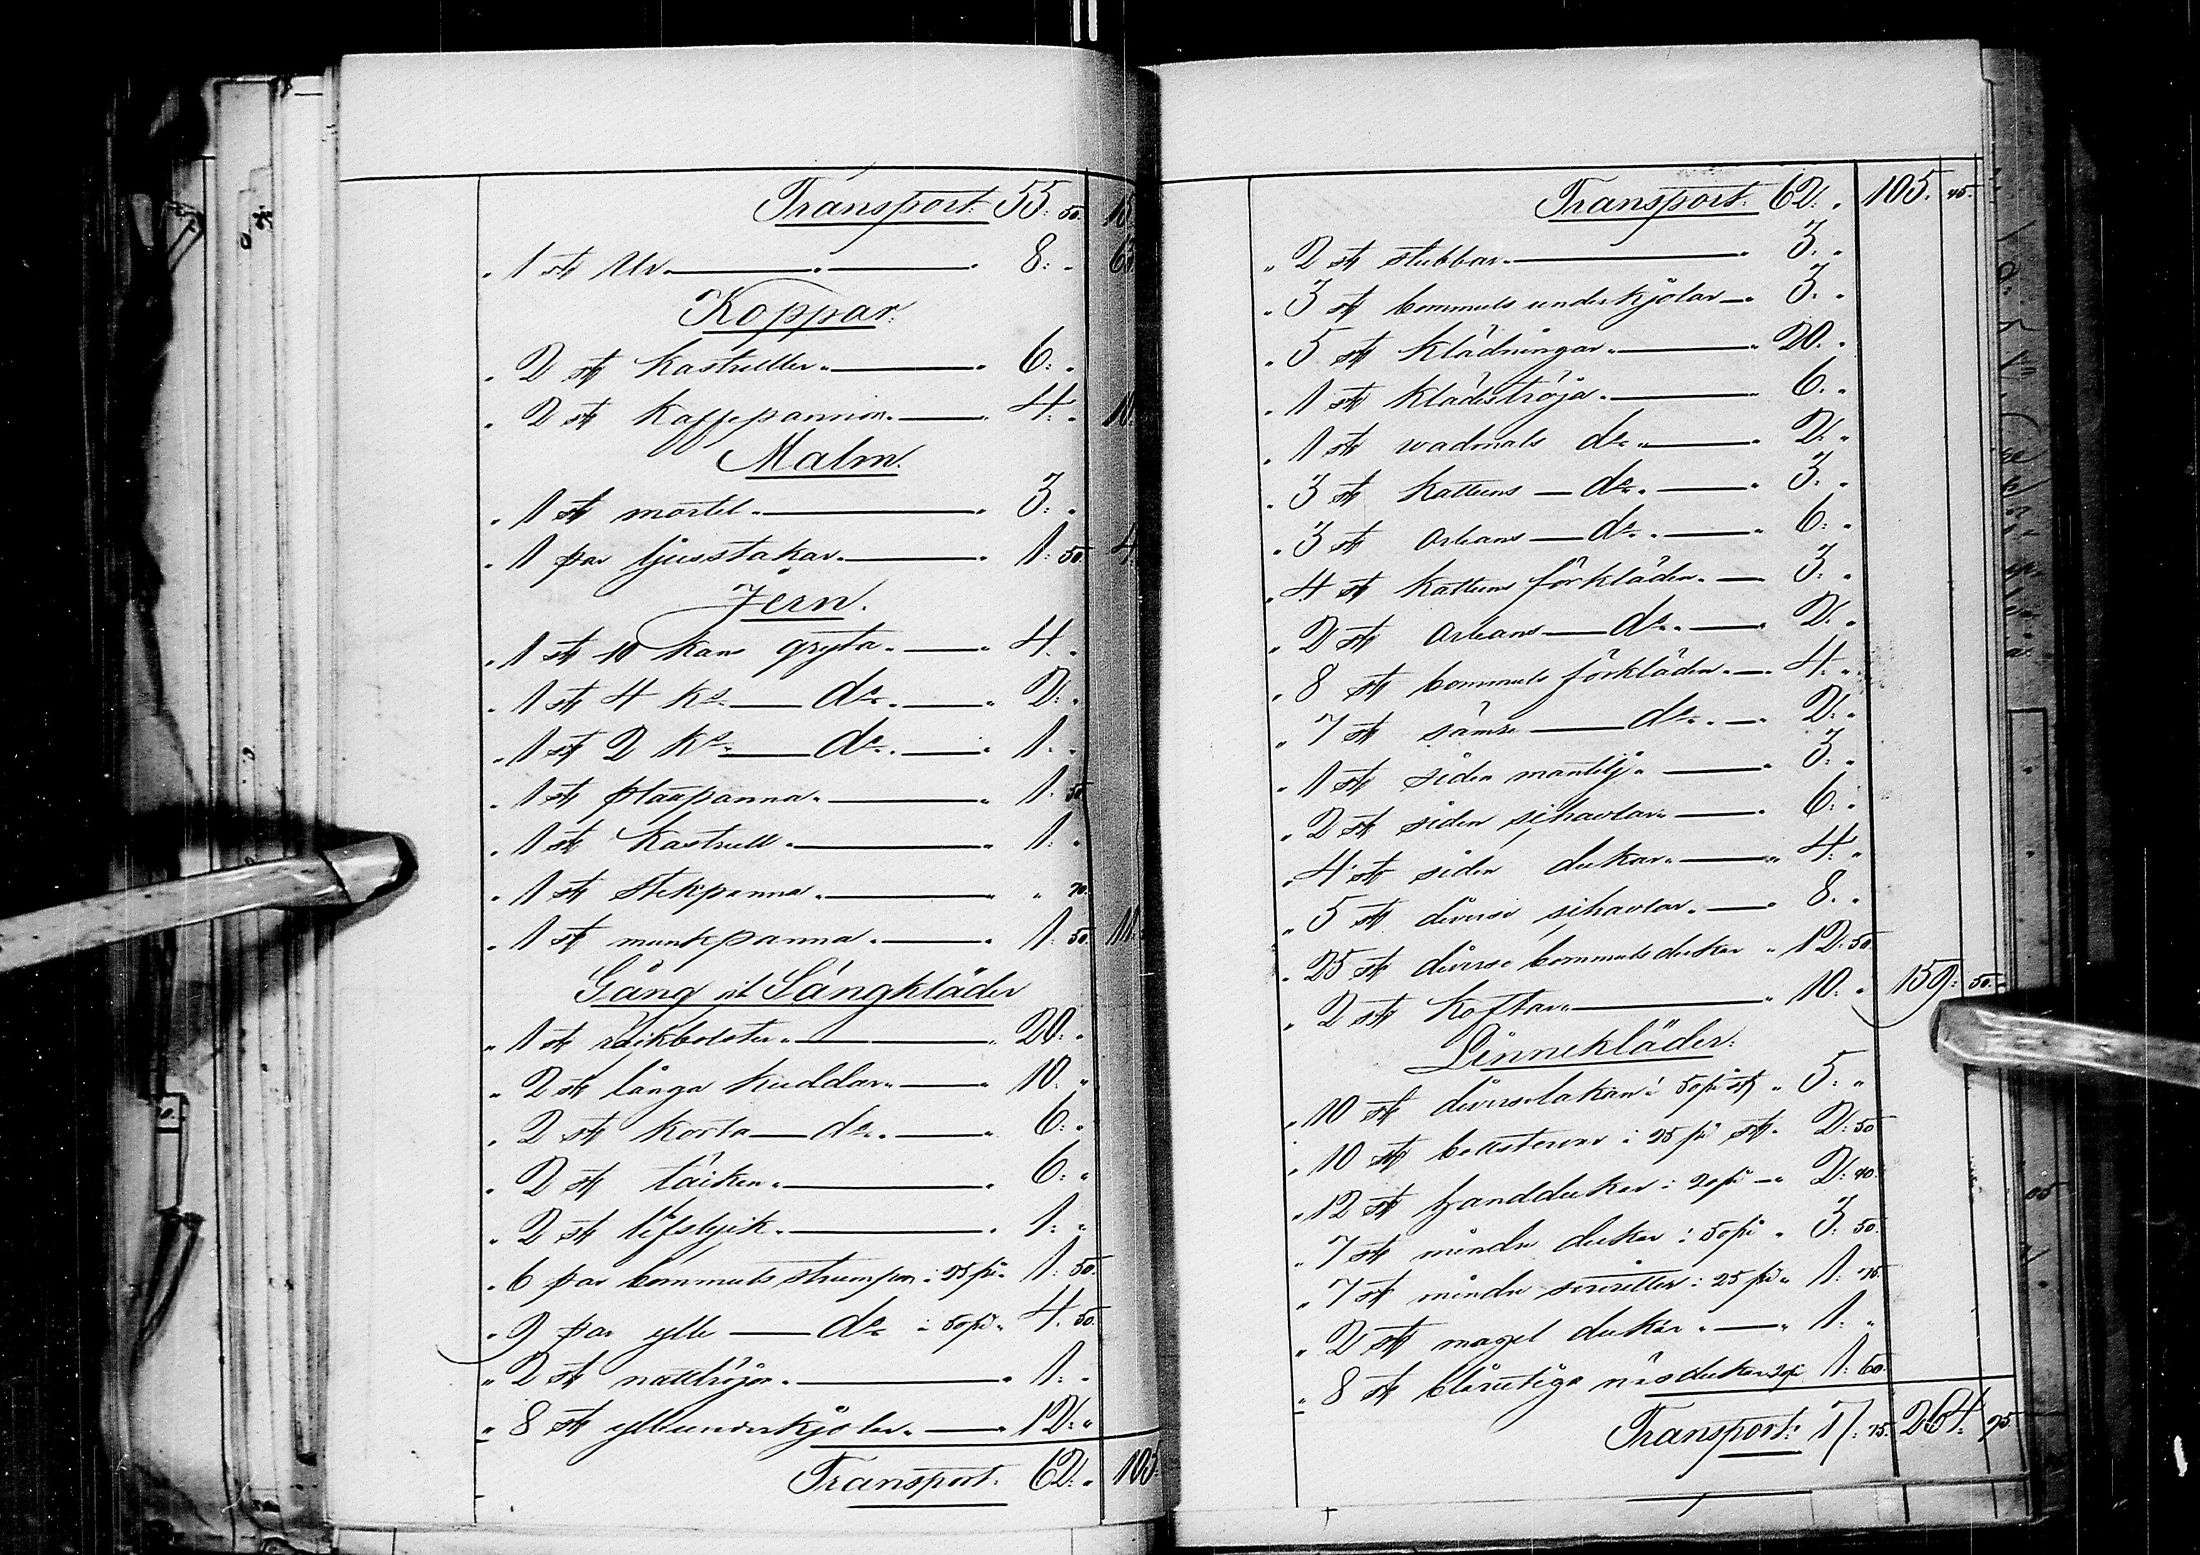 Transport: 55: 50. 15
" 1 st Ur. 8: " 63
Koppar.
" 2 st Kastruller. 6: "
" 2 st Kaffepannor. 4: " 10.
Malm.
" 1 st mortel. 3: "
" 1 par ljusstakar. 1: 50 4.
Jern.
" 1 st 10 kans gryta. 4. "
" 1 st 4 ks do. 2: "
" 1 st 2 ks do. 1: "
" 1 st plättpanna. 1: 50
" 1 st Kastrull. 1: "
" 1 st Stekpanna. " 70.
" 1 st munkpanna. 1: 50. 11.
Gång o Sängkläder
" 1 st bolster. 20: "
" 2 st långa kuddar. 10: "
" 2 st korta do. 6: "
" 2 st täcken. 6: "
" 2 st lifstyck. 1: "
" 6 par bommuls strumpor i 25 pi. 1: 50.
" 9 par ylle do i 50 pi. 4. 50.
" 2 st nattröjor. 1: "
" 8 st ylleunderkjolar. 12: "
Transport. 62: " 105
Transport: 62: " 105. 45.
" 2 st stubbar. 3: "
" 3 st bommuls underkjolar 3: "
" 5 st klädningar. 20. "
" 1 st klädströja. 6: "
" 1 st wadmals do. 2: "
" 3 st kattuns do. 3: "
" 3 st Orleans do. 6: "
" 4 st kattuns förkläden. 3: "
" 2 st Orleans do. 2: "
" 8 st bommuls förkläden. 4: "
" 7 st sämre do. 2: "
" 1 st siden mantilj. 3: "
" 2 st siden sjhavlar. 6: "
" 4 st siden dukar. 4: "
" 5 st diverse sjhavlar. 8. "
" 25 st diverse bommulsdukar " 12: 50
" 2 st Koftar. 10: " 159: 50.
Linnekläder:
" 10 st diverse lakan i 50 pi st " 5: "
" 10 st i 25 pi st. 2: 50
" 12 st handdukar i 20 pi 2: 40.
" 7 st mindre dukar i 50 pi " 3. 50.
" 7 st mindre servetter i 25 pi " 1: 75.
" 2 st dukar. 1: "
" 8 st blårutiga näsdukar 20 pi 1: 60.
Transport: 17: 75. 264: 95